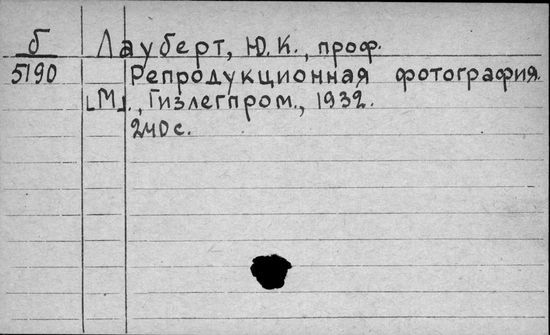 б Лауберт, Ю.К., проф.
5190 Репродукционная фотография.
[М]., Гизлегпром., 1932.
240 с.